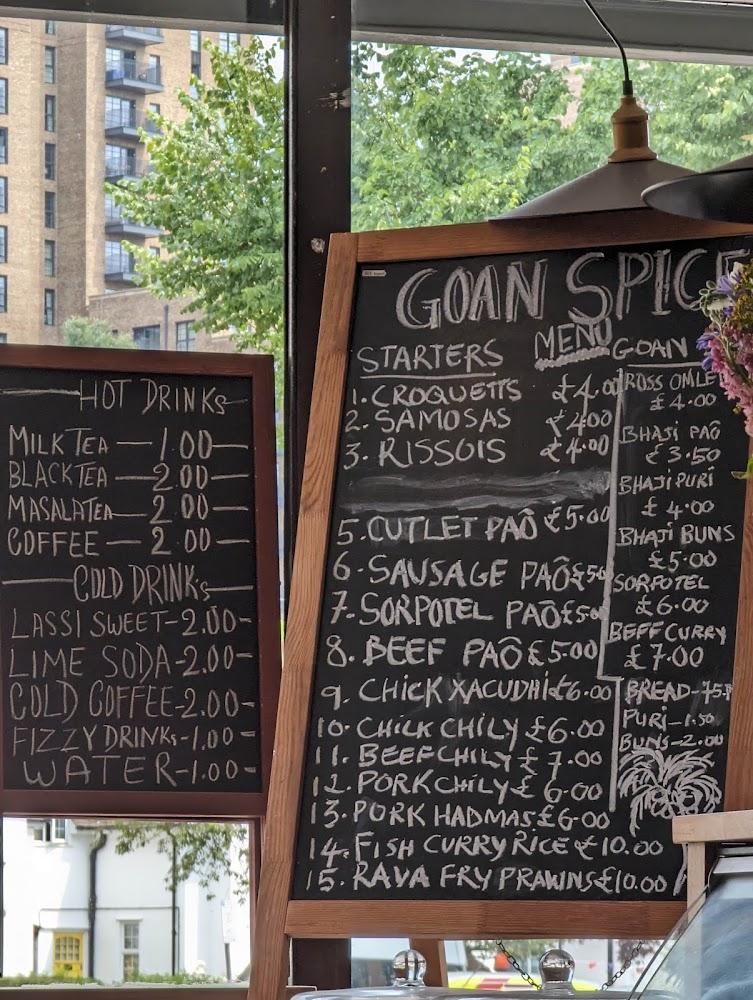 HOT DRINKS
MILK TEA — 1.00
BLACK TEA — 2.00
MASALA TEA — 2.00
COFFEE — 2.00
COLD DRINKS
LASSI SWEET - 2.00
LIME SODA - 2.00
COLD COFFEE - 2.00
FIZZY DRINKS - 1.00
WATER - 1.00
GOAN SPICE
MENU
STARTERS
1. CROQUETTS £4.00
2. SAMOSAS £4.00
3. RISSOIS £4.00
5. CUTLET PAÔ £5.00
6. SAUSAGE PAÔ £5.0
7. SORPOTEL PAÔ £5.0
8. BEEF PAÔ £5.00
9. CHICK XACUDHI £6.00
10. CHICK CHILY £6.00
11. BEEF CHILY £7.00
12. PORK CHILY £6.00
13. PORK HADMAS £6.00
14. FISH CURRY RICE £10.00
15. RAVA FRY PRAWINS £10.00
GOAN
ROSS OMLE
£4.00
BHAJI PAÔ
£3.50
BHAJI PURI
£4.00
BHAJI BUNS
£5.00
SORPOTEL
£6.00
BEFF CURRY
£7.00
BREAD - 75P
PURI - 1.50
BUNS - 2.00